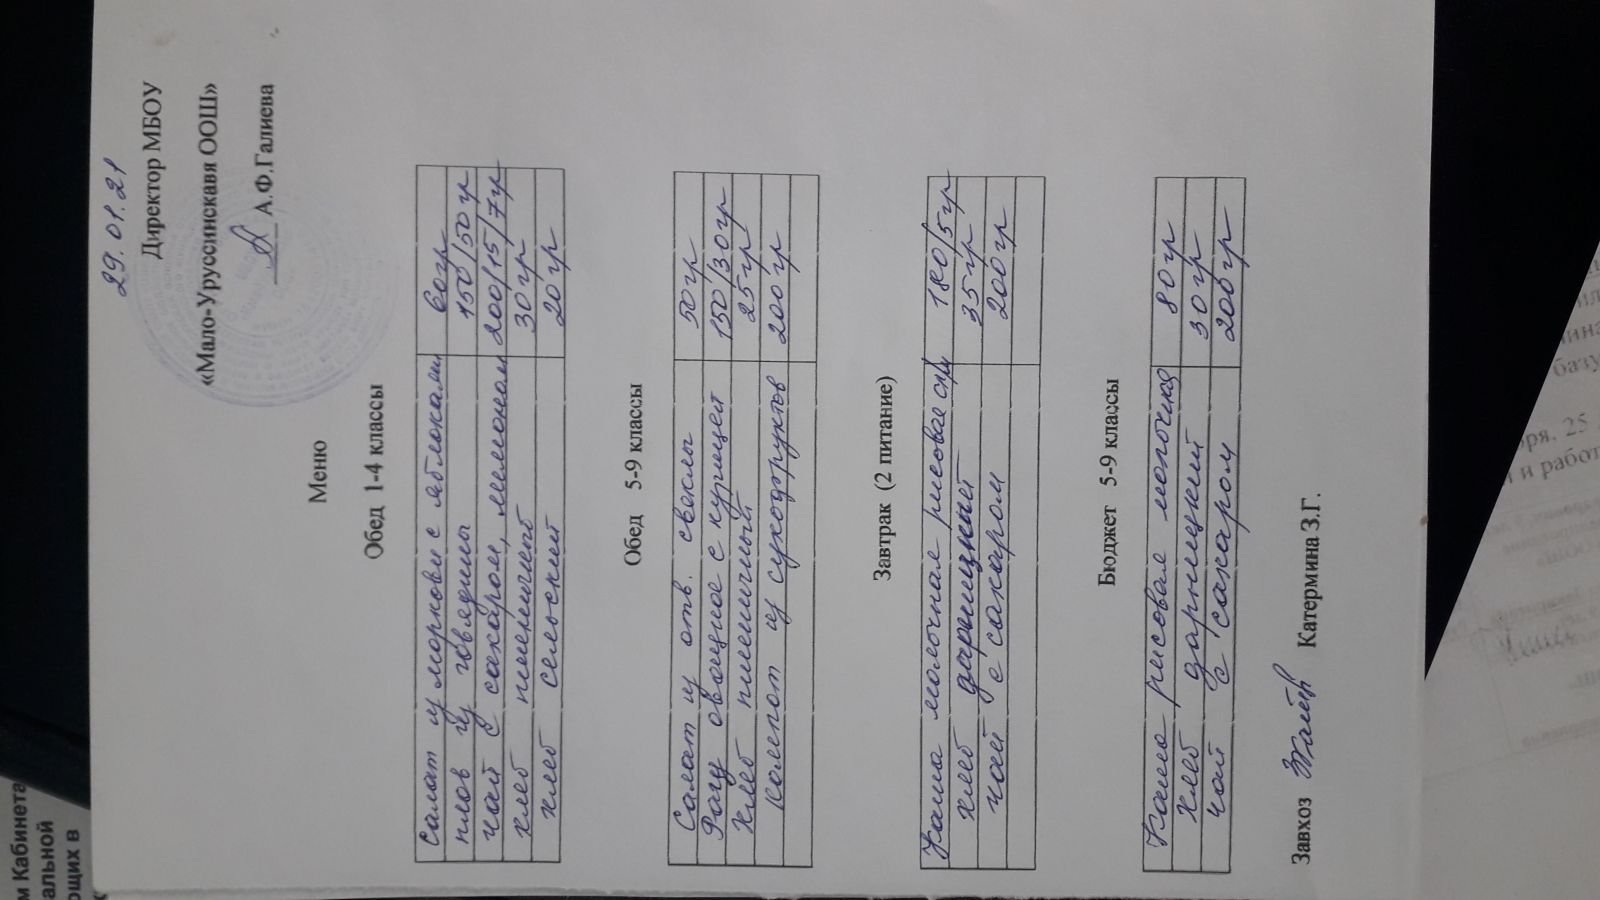 29.01.21
Директор МБОУ
«Мало-Уруссинскавя ООШ»
А.Ф.Галиева
Меню
Обед 1-4 классы
Салат из моркови с яблоками 60гр
плов из говядины 150/50гр
чай с сахаром, лимоном 200/15/7гр
хлеб пшеничный 30гр
хлеб сельский 20гр
Обед 5-9 классы
Салат из отв. свеклы 50гр
Рагу овощное с курицей 150/30гр
Хлеб пшеничный 25гр
Компот из сухофруктов 200гр
Завтрак (2 питание)
Каша молочная рисовая 180/5гр
хлеб дарницкий 35гр
чай с сахаром 200гр
Бюджет 5-9 классы
Каша рисовая молочная 80гр
Хлеб дарницкий 30гр
чай с сахаром 200гр
Завхоз Катермина З.Г.
м Кабинета
альной
ющих в
базу
ря. 25
и работ